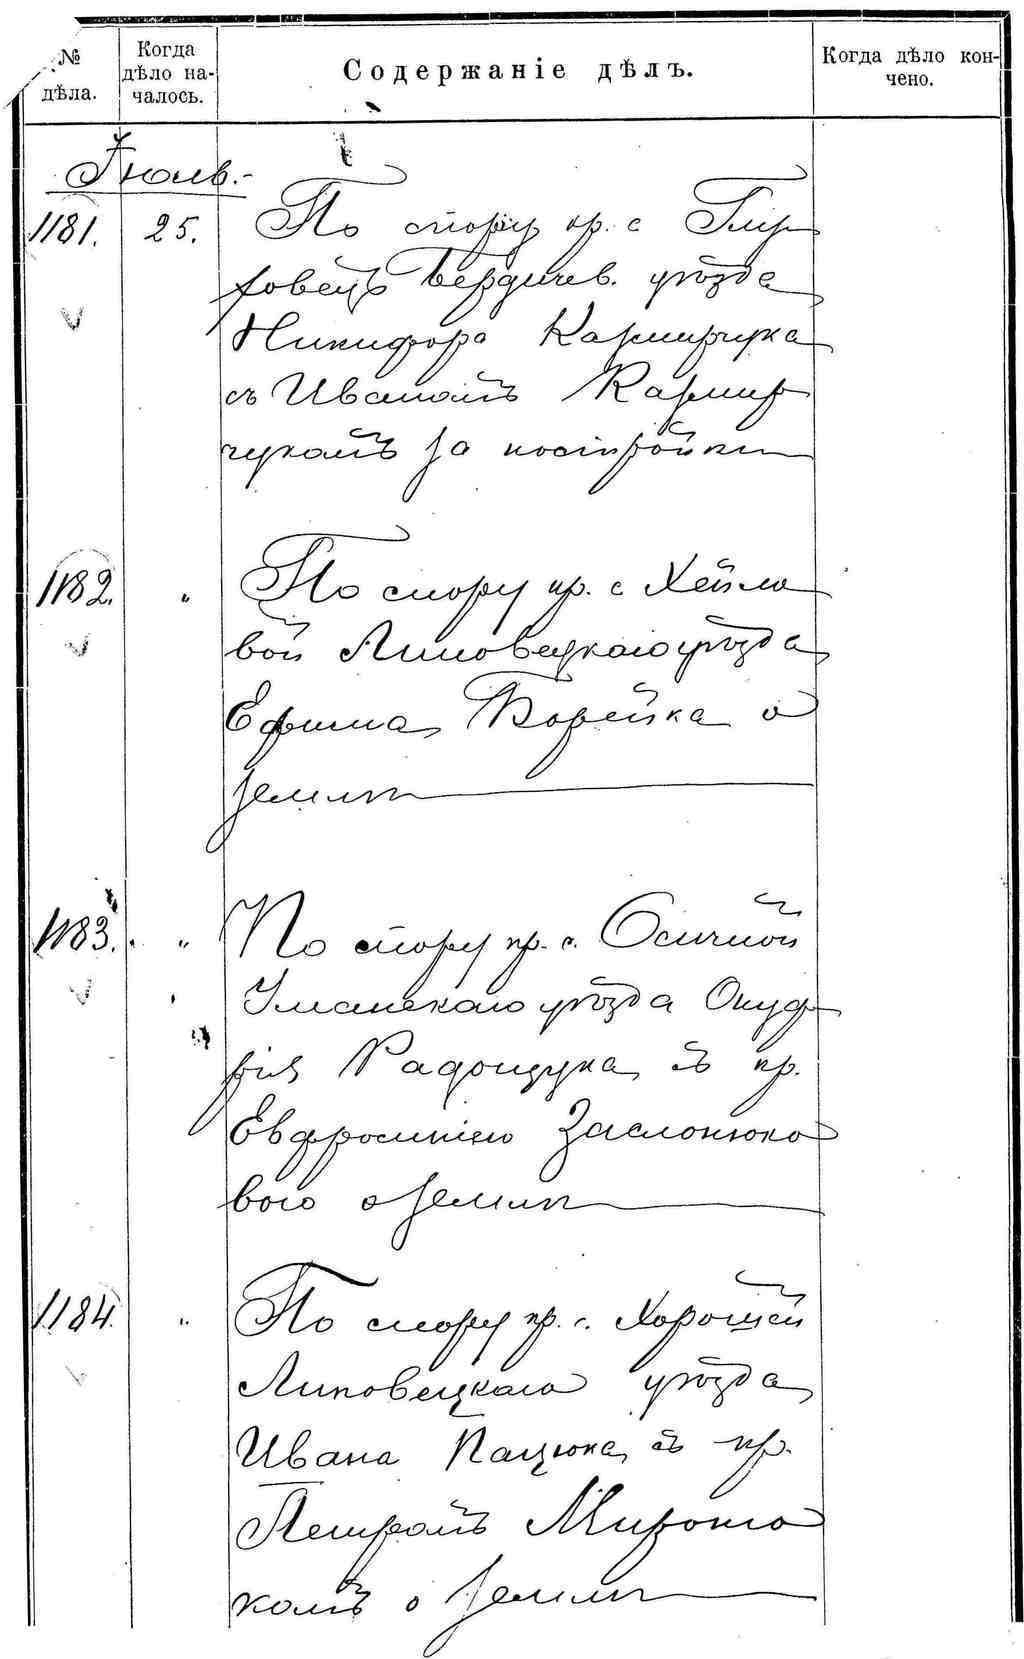 № дѣла.
Когда дѣло началось.
Содержаніе дѣлъ.
Когда дѣло кончено.
Іюль.-
1181. 25. По спору кр. с
ковецъ Бердичев. уѣзда
Никифора Кармирчука
съ Иваномъ Кармир
чукомъ за постройки
1182. " По спору кр. с Хейло
вой Липовецкаго уѣзда
Ефима Борейка о
землѣ
1183. " По спору кр. с. Осичной
Уманскаго уѣзда Онуф
рія Радощука съ кр.
Евфросиніею Заслонюко
вою о землѣ
1184. " По спору кр. с. Хорошей
Липовецкаго уѣзда
Ивана Пацюка съ кр.
Петромъ Мироню
комъ о землѣ